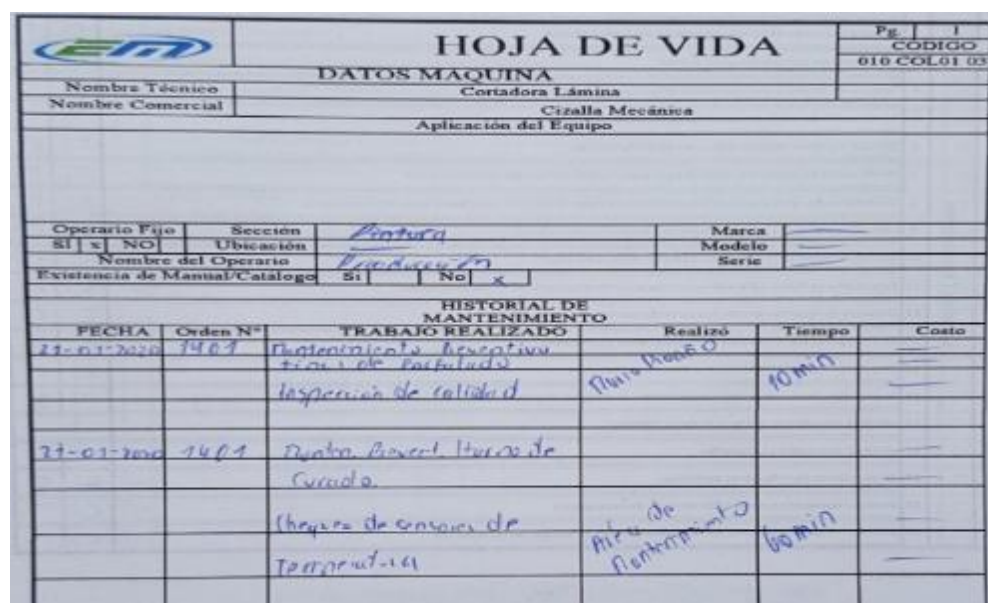 EM
HOJA DE VIDA
Pg. 1
CODIGO
010 COL01 03
DATOS MAQUINA
Nombre Técnico Cortadora Lámina
Nombre Comercial Cizalla Mecánica
Aplicación del Equipo
Operario Fijo Sección Pintura Marca
SI x NO Ubicación Modelo
Nombre del Operario Producción Serie
Existencia de Manual/Catálogo Si No x
HISTORIAL DE
MANTENIMIENTO
FECHA Orden N° TRABAJO REALIZADO Realizó Tiempo Costo
1401 Mantenimiento Preventivo
de
Inspección de calidad 10 min
1401 Manten. Prevent. Horno de
Curado.
Chequeo de sensores de Área de Mantenimiento 60 min
Temperatura